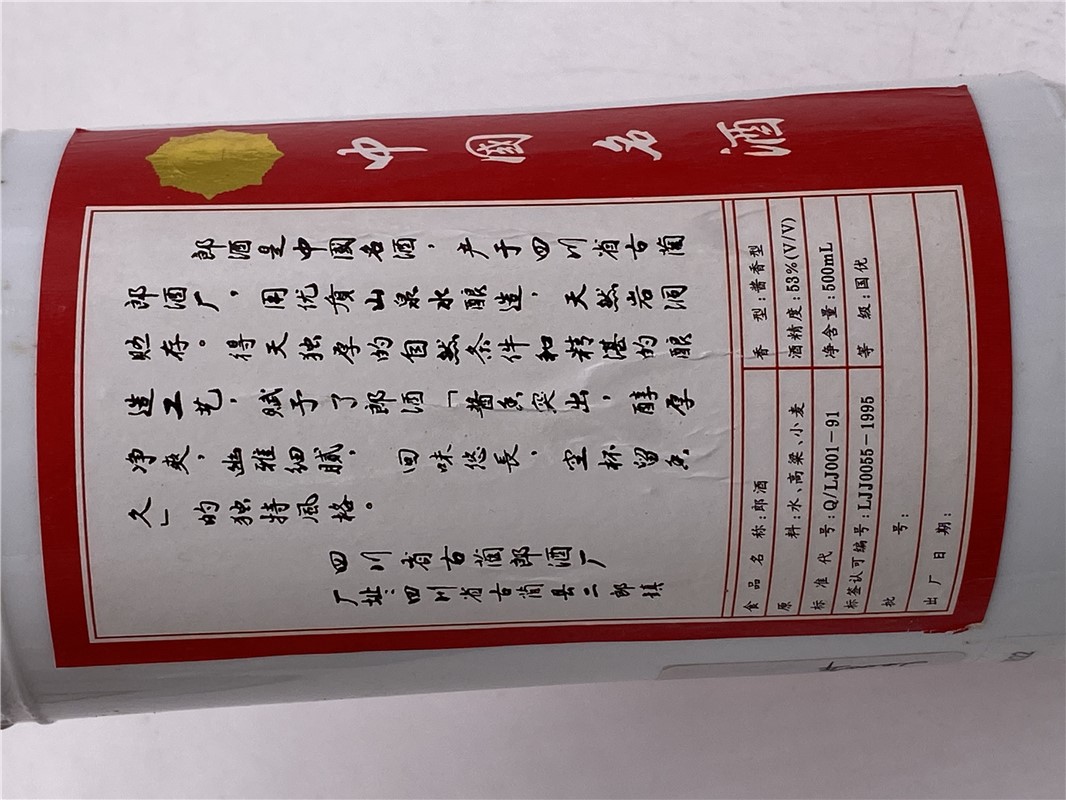 中國名酒
郎酒是中國名酒，产于四川省古蔺
郎酒厂，用优质山泉水酿造，天然岩洞
贮存。得天独厚的自然条件和精湛的酿
造工艺，赋予了郎酒「酱香突出，醇厚
净爽，幽雅细腻，回味悠長，空杯留香
久」的独特风格。
四川省古蔺郎酒厂
厂址：四川省古蔺县二郎镇
食品名称:郎酒 香型:酱香型
原料:水、高粱、小麦 酒精度:53%(V/V)
标准代号:Q/LJ001-91 净含量:500mL
标签认可编号:LJJ0055-1995 等级:国优
批号:
出厂日期: